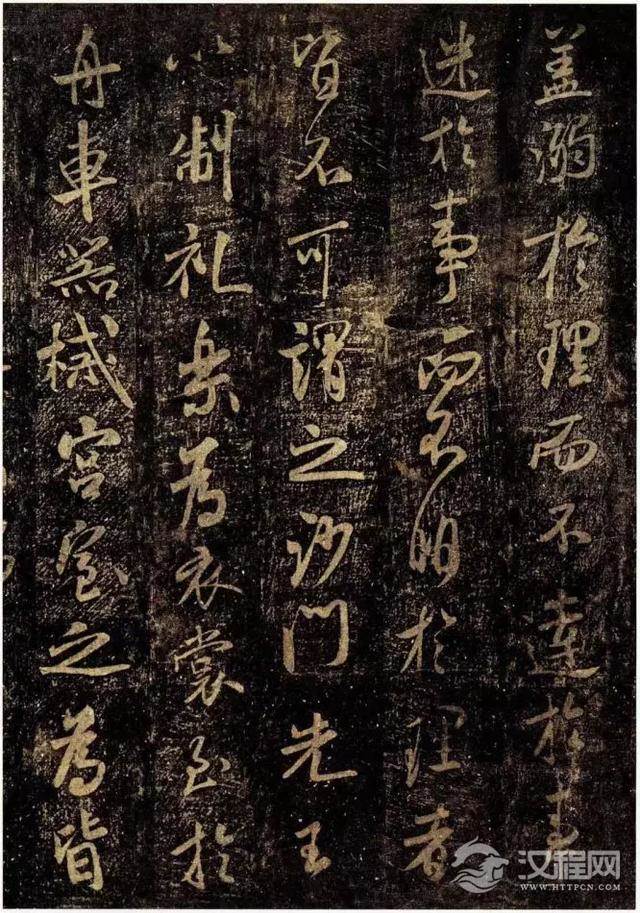 盖溺於理而不達於事
迷於事而不明於理者
皆不可謂之沙門先王
以制礼樂為衣裳至於
舟車器械宮室之為皆
汉程网
WWW.HTTPCN.COM